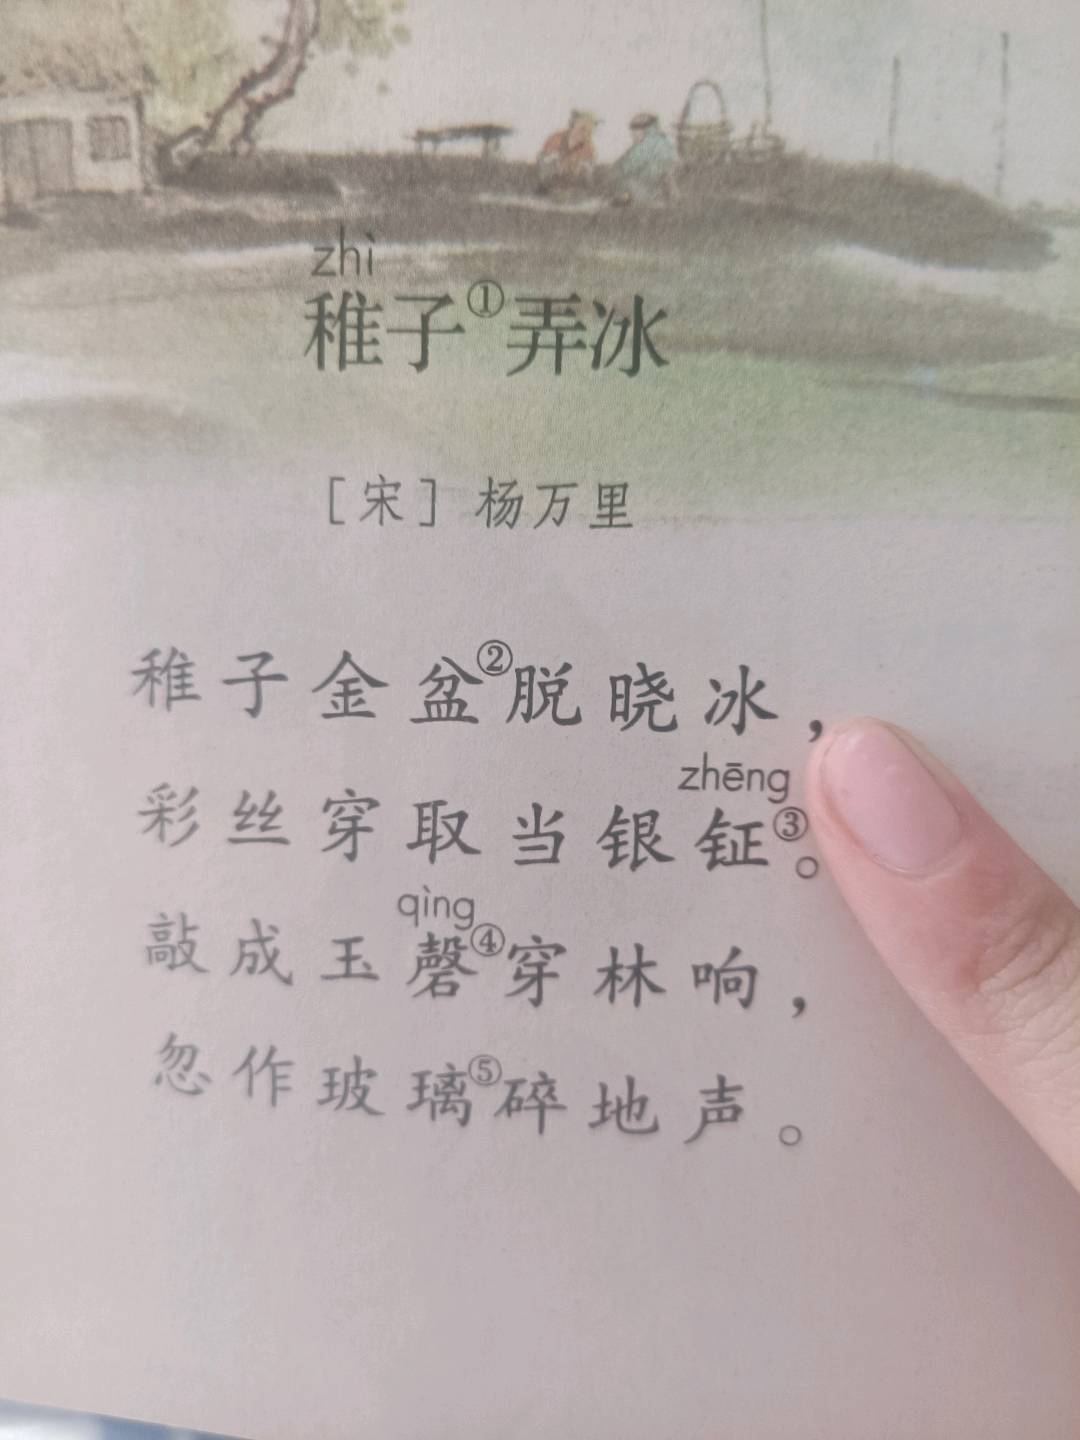 zhì
稚子①弄冰
［宋］杨万里
稚子金盆②脱晓冰，
zhēng
彩丝穿取当银钲③。
qìng
敲成玉磬④穿林响，
忽作玻璃⑤碎地声。